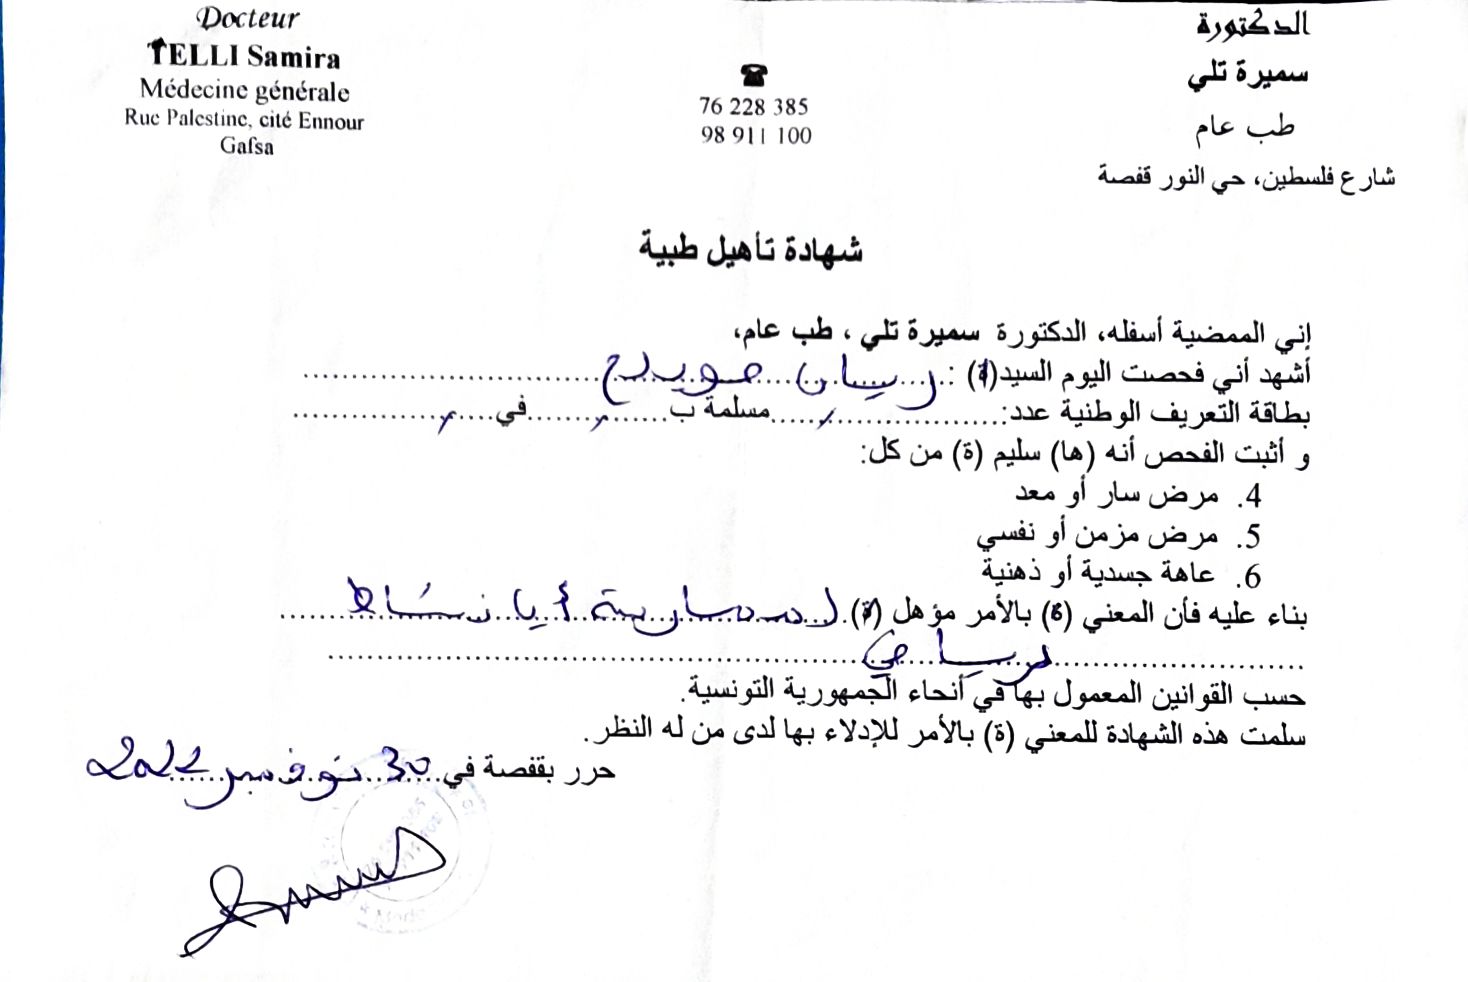 Docteur
TELLI Samira
Médecine générale
Rue Palestine, cité Ennour
Gafsa
76 228 385
98 911 100
الدكتورة
سميرة تلي
طب عام
شارع فلسطين، حي النور قفصة
شهادة تأهيل طبية
إني الممضية أسفله، الدكتورة سميرة تلي ، طب عام،
أشهد أني فحصت اليوم السيد(ة) : ريان
بطاقة التعريف الوطنية عدد: مسلمة ب في
و أثبت الفحص أنه (ها) سليم (ة) من كل:
4. مرض سار أو معد
5. مرض مزمن أو نفسي
6. عاهة جسدية أو ذهنية
بناء عليه فأن المعني (ة) بالأمر مؤهل (ة) لممارسة أيا نشاط
رياضي
حسب القوانين المعمول بها في أنحاء الجمهورية التونسية.
سلمت هذه الشهادة للمعني (ة) بالأمر للإدلاء بها لدى من له النظر.
حرر بقفصة في 30 نوفمبر 2022